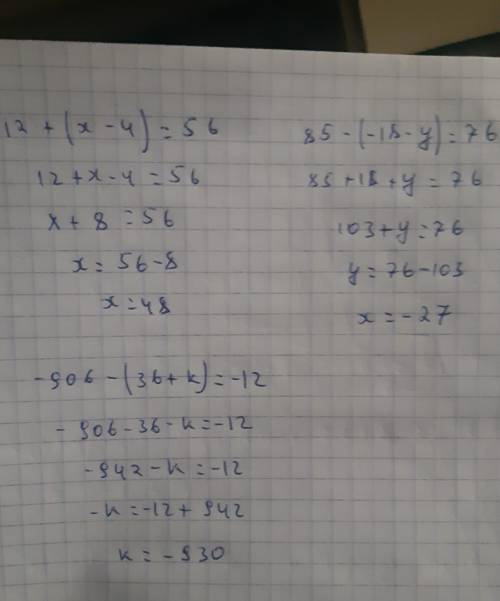 12 + (x - 4) = 56
12 + x - 4 = 56
x + 8 = 56
x = 56 - 8
x = 48
85 - (-18 - y) = 76
85 + 18 + y = 76
103 + y = 76
y = 76 - 103
x = -27
-906 - (36 + k) = -12
-906 - 36 - k = -12
-942 - k = -12
-k = -12 + 942
k = -930